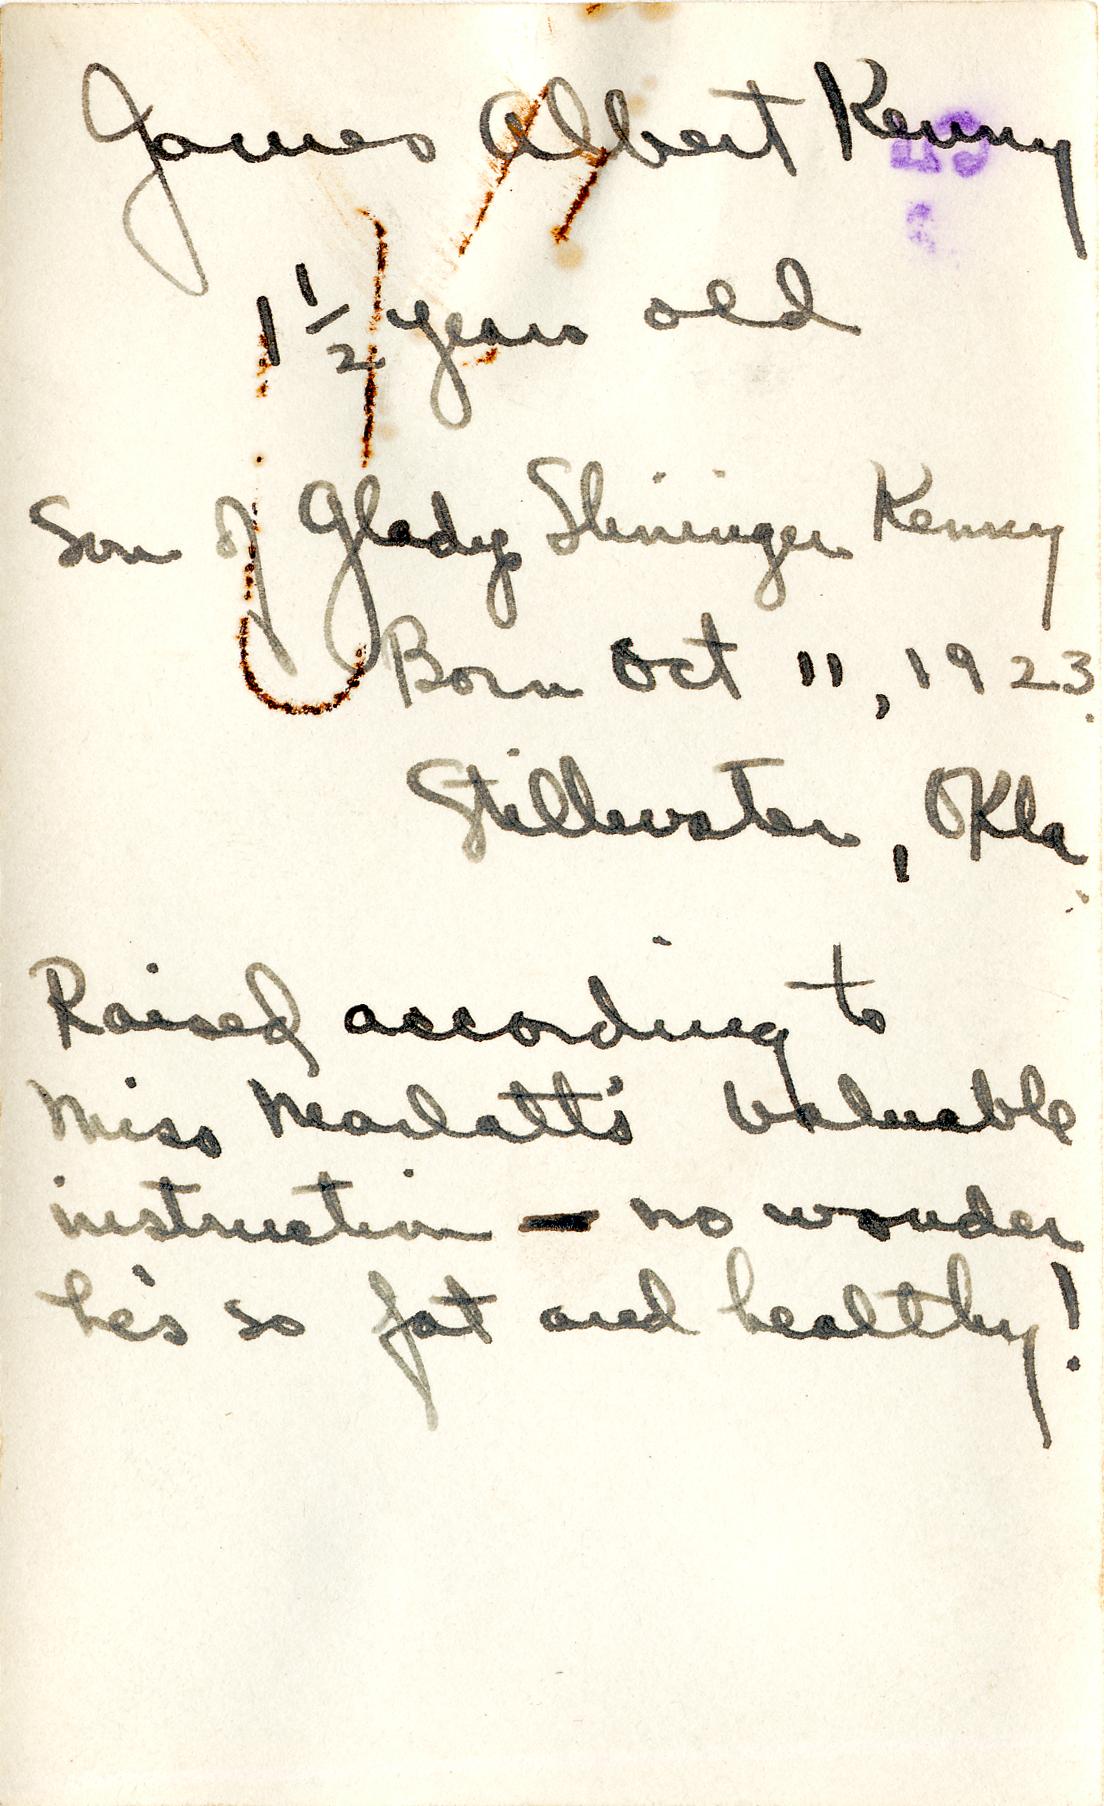 James Albert Kenny
1 1/2 years old
Son of Gladys Shininger Kenny
Born Oct 11, 1923.
Stillwater, Okla.
Raised according to
Miss Marlatt's valuable
instruction — no wonder
he's so fat and healthy!